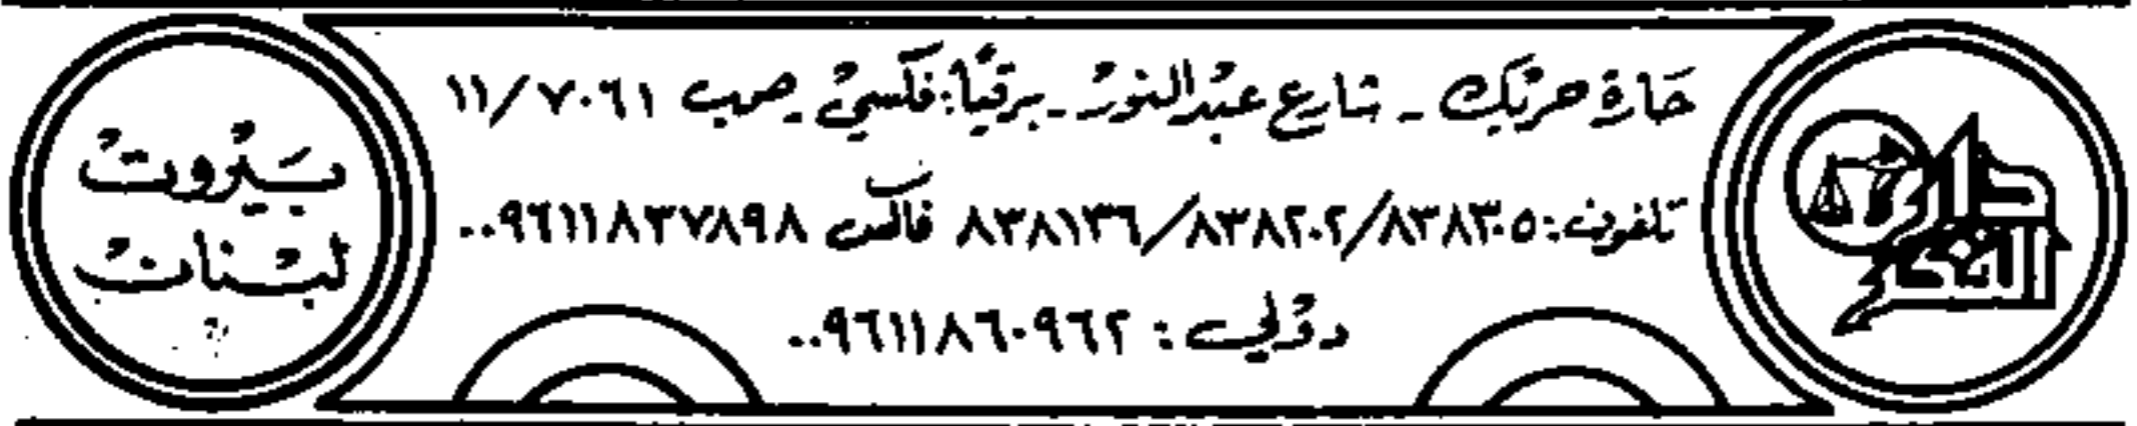 حَارة حرَيك - شارع عبْد النور - برقيًا: فكسيْ - صرب ١١/٧٠٦١
تلفون: ٨٣٨٣٠٥/٨٣٨٢٠٢/٨٣٨١٣٦ فاكس ٠٠٩٦١١٨٣٧٨٩٨
دوْلي: ٠٠٩٦١١٨٦٠٩٦٢
بَيْروت
لبْنان